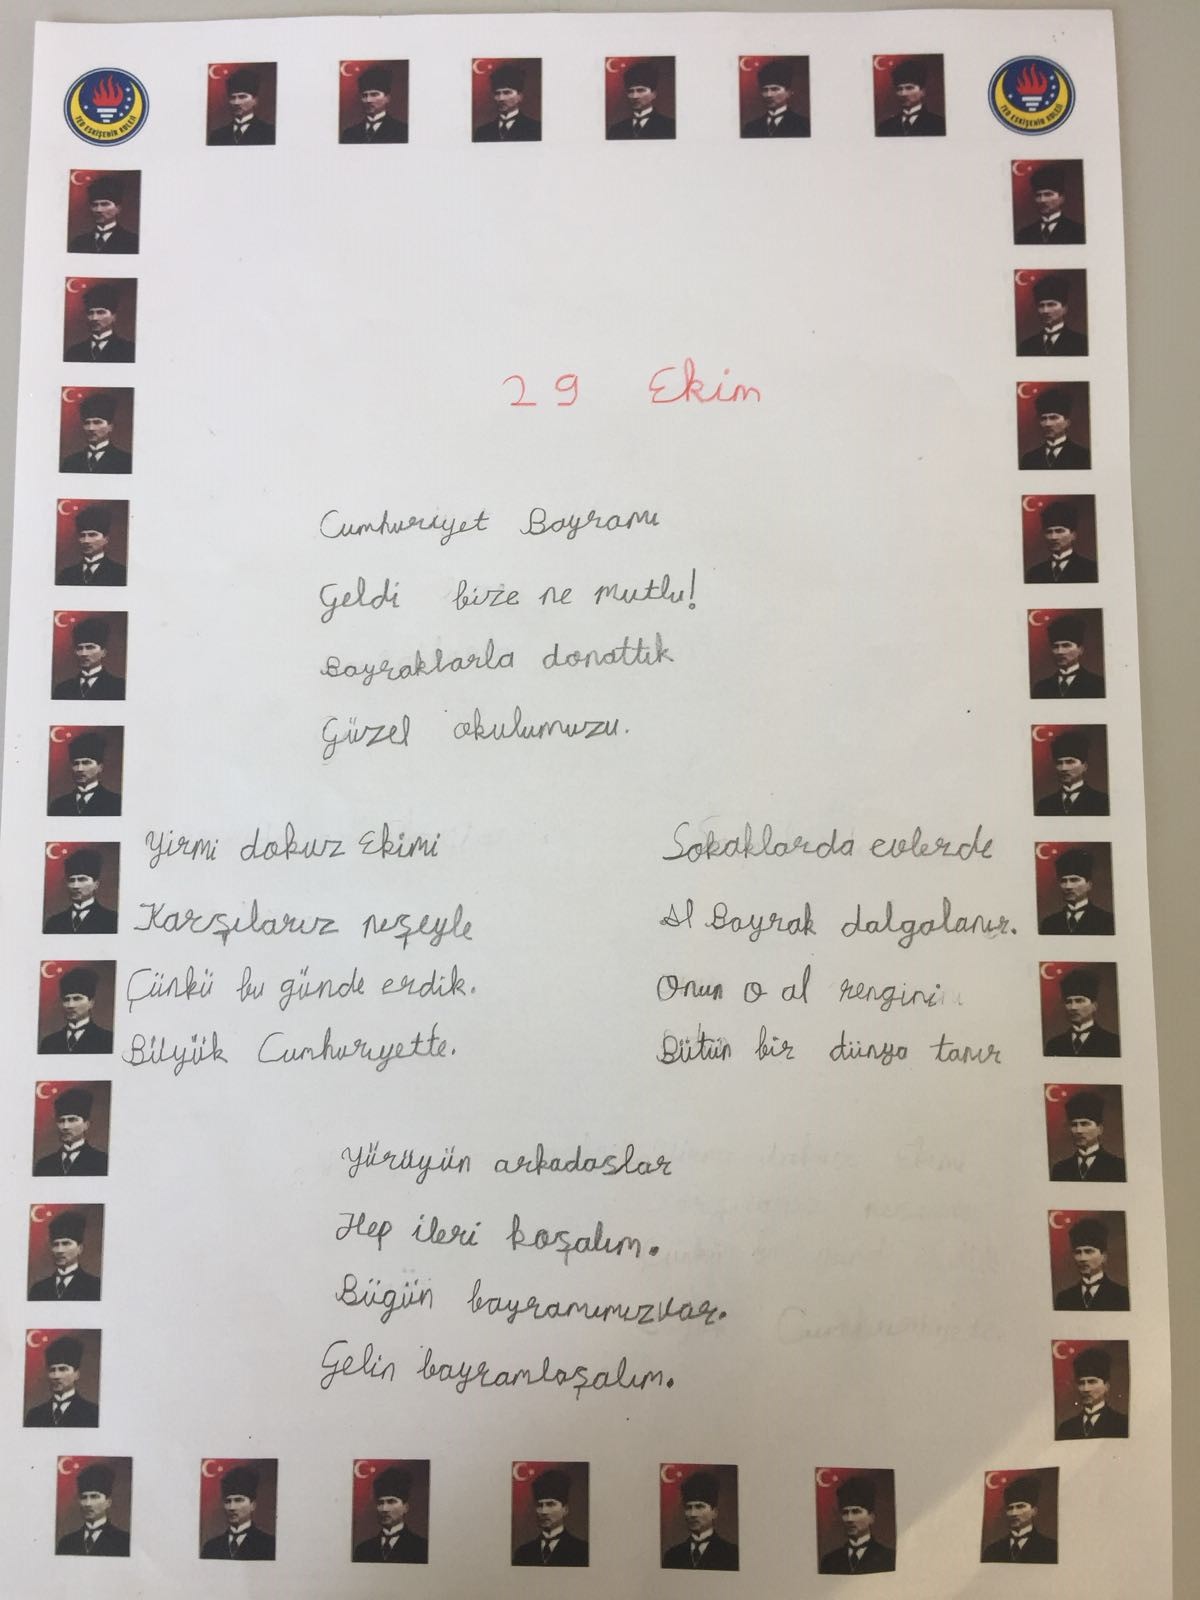 TED ESKİŞEHİR KOLEJİ
TED ESKİŞEHİR KOLEJİ
29 Ekim
Cumhurıyet Bayramı
Geldi bize ne mutlu!
Bayraklarla donattık
Güzel okulumuzu.
Yirmi dokuz Ekimi
Karşılarız neşeyle
Çünkü bu günde erdik.
Büyük Cumhurıyette.
Sokaklarda evlerde
Al Bayrak dalgalanır.
Onun o al rengini
Bütün bir dünya tanır
Yürüyün arkadaşlar
Hep ileri koşalım.
Bügün bayramımızvar.
Gelin bayramlaşalım.